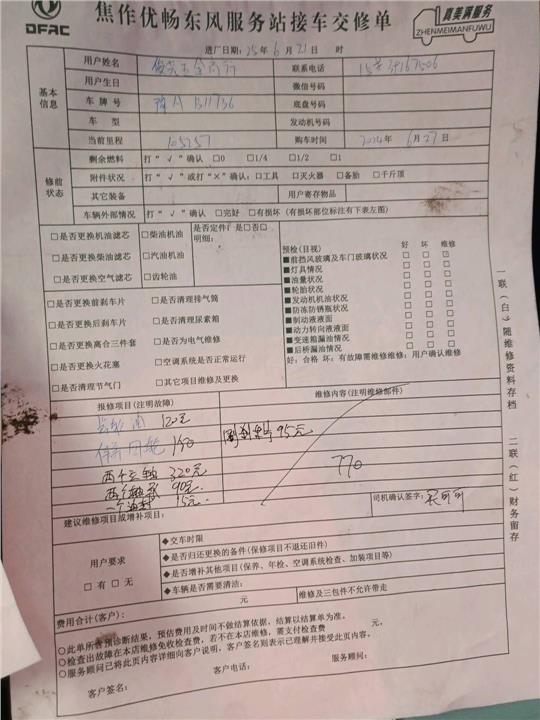 DFAC
焦作优畅东风服务站接车交修单
真美满服务
ZHENMEIMANFUWU
进厂日期：25年6月21日 时
基本信息
用户姓名 联系电话
用户生日 微信号码
车牌号 豫A 底盘号码
车型 发动机号码
当前里程 105757 购车时间 2024年6月27日
修前状态
剩余燃料 打“√”确认 □0 □1/4 □1/2 □1
附件状况 打“√”或打“×”确认：□工具 □灭火器 □备胎 □千斤顶
其它装备 用户寄存物品
车辆外部情况 打“√”确认 □完好 □有损坏（有损坏部位标注有下表左图）
□是否更换机油滤芯 □柴油机油 是否定件：是□否□
明细：
□是否更换柴油滤芯 □汽油机油
□是否更换空气滤芯 □齿轮油
预检（目视） 好 坏 维修
■前挡风玻璃及车门玻璃状况 □ □ □
■灯具情况 □ □ □
■油量状况 □ □ □
■轮胎状况 □ □ □
■发动机机油状况 □ □ □
■防冻防锈瓶状况 □ □ □
■制动液液面 □ □ □
■动力转向液液面 □ □ □
■变速箱漏油情况 □ □ □
■后桥漏油情况 □ □ □
好：合格 坏：有故障需维修维修：用户确认维修
□是否更换前刹车片 □是否清理排气筒
□是否更换后刹车片 □是否清理尿素箱
□是否更换离合三件套 □是否为电气维修
□是否更换火花塞 □空调系统是否正常运行
□是否清理节气门 □其它项目维修及更换
报修项目（注明故障） 维修内容（注明维修部件）
120元
190 95元
320元 770
两个轴承 90元
一个油封 15元
司机确认签字：
建议维修项目或增补项目：
用户要求
□有 □无
◆交车时限
◆是否归还更换的备件（保修项目不退还旧件）
◆是否增补其他项目（保养、年检、空调系统检查、加装项目等）
◆车辆是否需要清油：
费用合计（客户）： 元 维修及三包件不允许带走
○此单所含预诊断结果，预估费用及时间不做结算依据，结算以结算单为准。
○检查出故障在本店维修免收检查费，若不在本店维修，需支付检查费 元，
○服务顾问已将此页内容详细向客户说明，客户签名则表示已理解并接受此页内容。
客户签名： 客户电话： 服务顾问：
一联（白）随维修资料存档
二联（红）财务留存